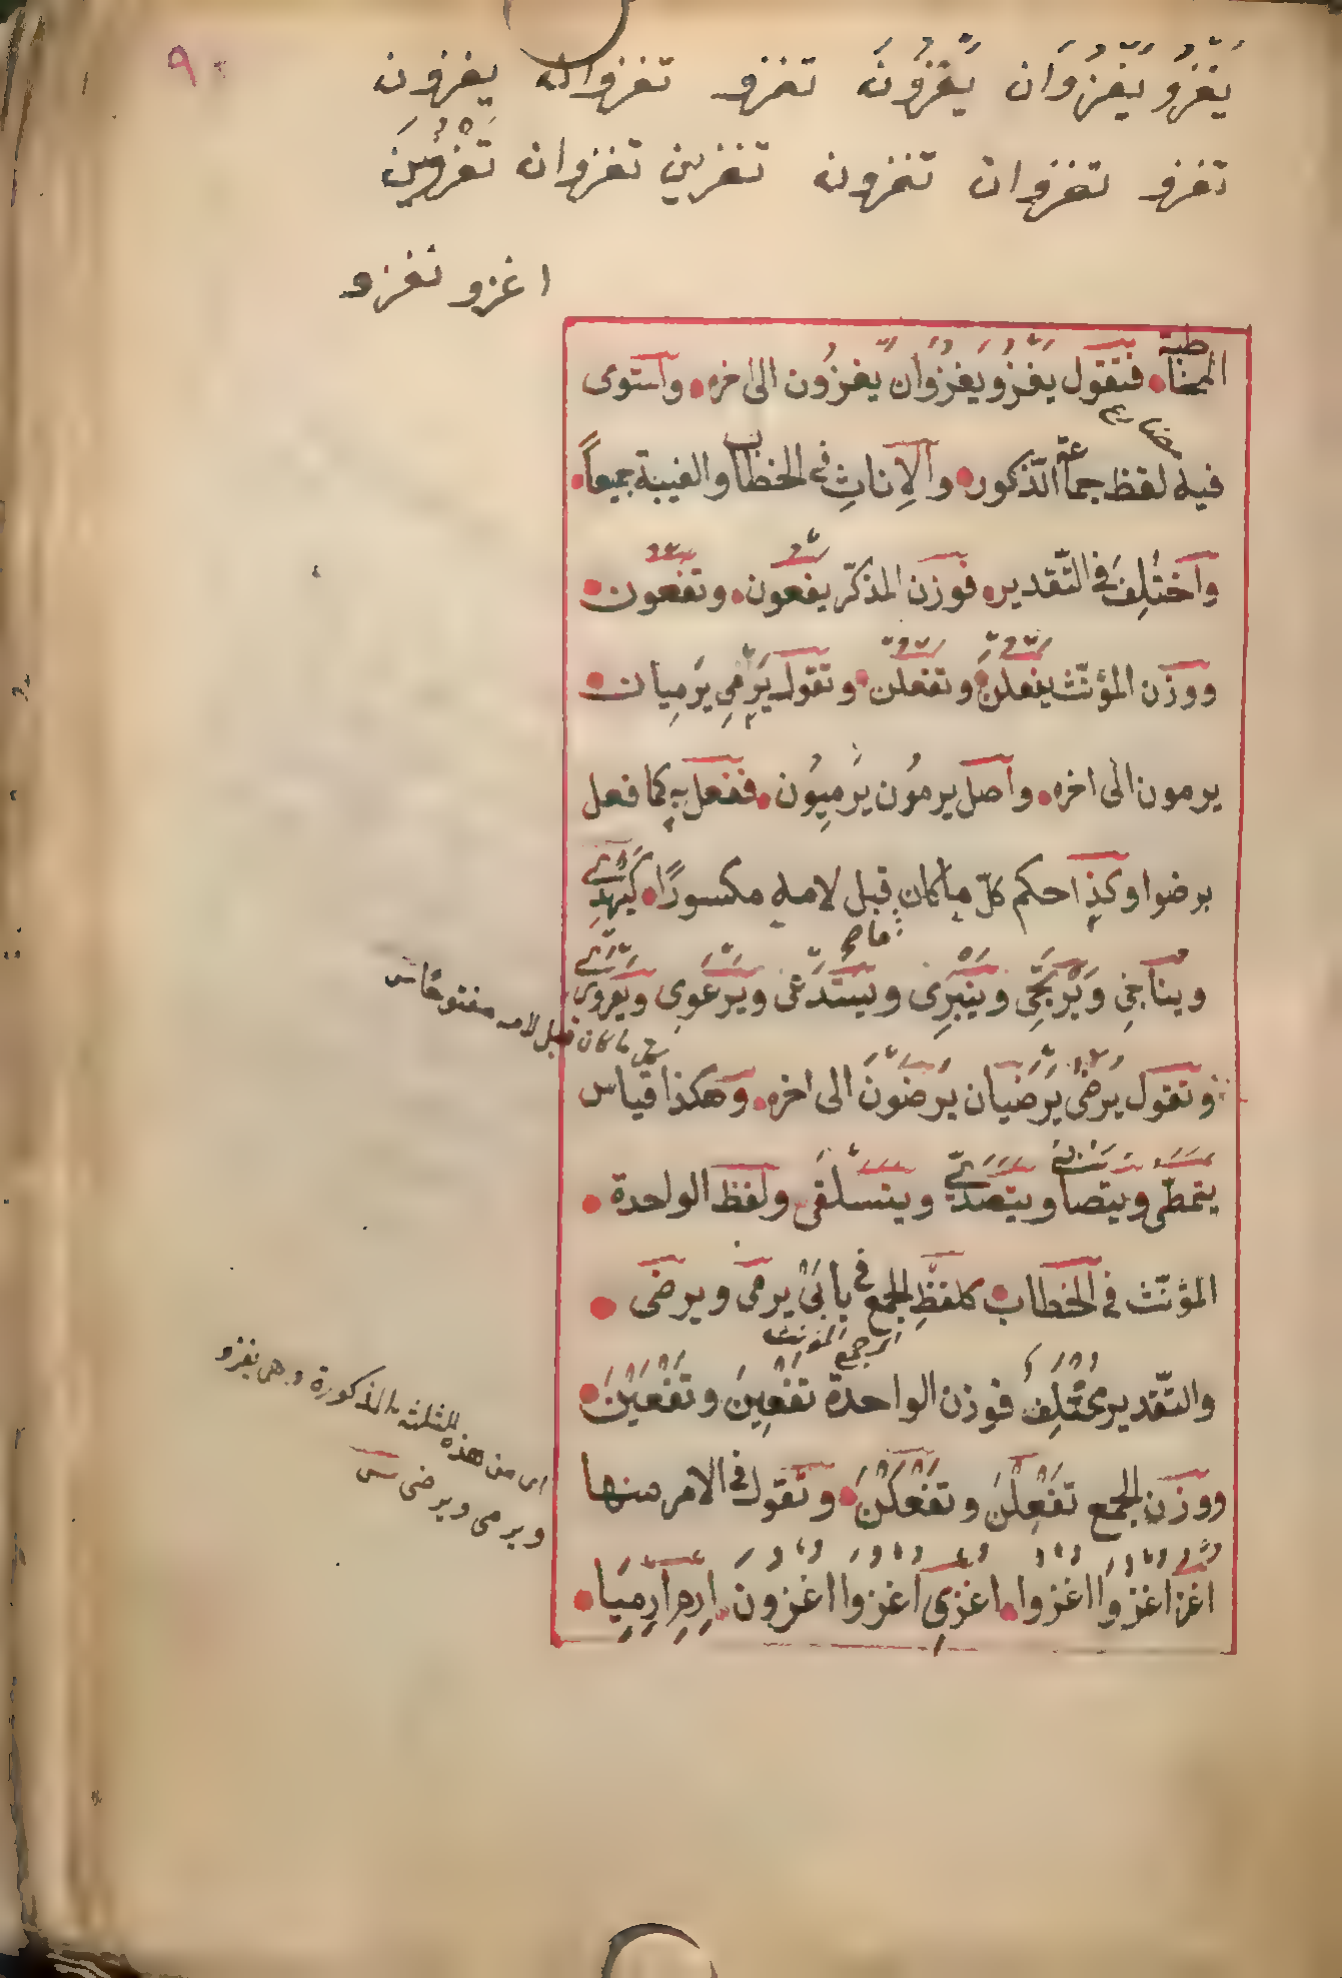 ٩
يَغْزُو يَغْزُوَانِ يَغْزُونَ تغزو تغزوان يغزون
تغزو تغزوان تغزون تغزين تغزوان تَغْزُونَ
اغزو نغزو
المخاطبة فتقول يغزُو يَغزُوَان يغزُون الى اخره واستوى
فيه لفظ جماعة الذّكور والاِناثِ فى الخطاب والغيبة جميعاً
واختُلِفَ فى التّقدير فوزن المذكّر يفعون وتفعون
ووزن المؤنّث يفعلن وتفعلن وتقول يَرْمِي يَرمِيان
يرمون الى اخره واصل يرمُون يَرمِيُون ففعل بِه كما فعل
برضوا وكذا حكم كلّ ما كان قبل لامه مكسورًا كيُهْدِي
ويناجِي ويَرْتَجِي وينْبَرِى ويستدعى ويَرْعَوِى ويَعْرَوْرِى
وتقول يرضَى يَرضَيَان يَرضَونَ الى اخره وهكذا قياس
يتمطّى ويتصابى ويتصدّى ويتسلقى ولفظ الواحدة
المؤنّث فى الخطاب كلفظِ الجمع فى بابَىْ يرمى ويرضى
والتّقدير مختَلِفٌ فوزن الواحدة تَفْعِينَ وتَفْعَيْنَ
ووزن الجمع تَفْعِلْنَ وتَفْعَلْنَ وتقول فى الامر منها
اغز اغزُوَا اغزُوا اغزِى اغزُوا اغزُونَ اِرمِ اِرمِيَا
مضارع
ناصح
كل ما كان قبل لامه مفتوحًا
اى جمع المؤنث
اى من هذه الثلثة المذكورة وهى يغزو
ويرمى ويرضى